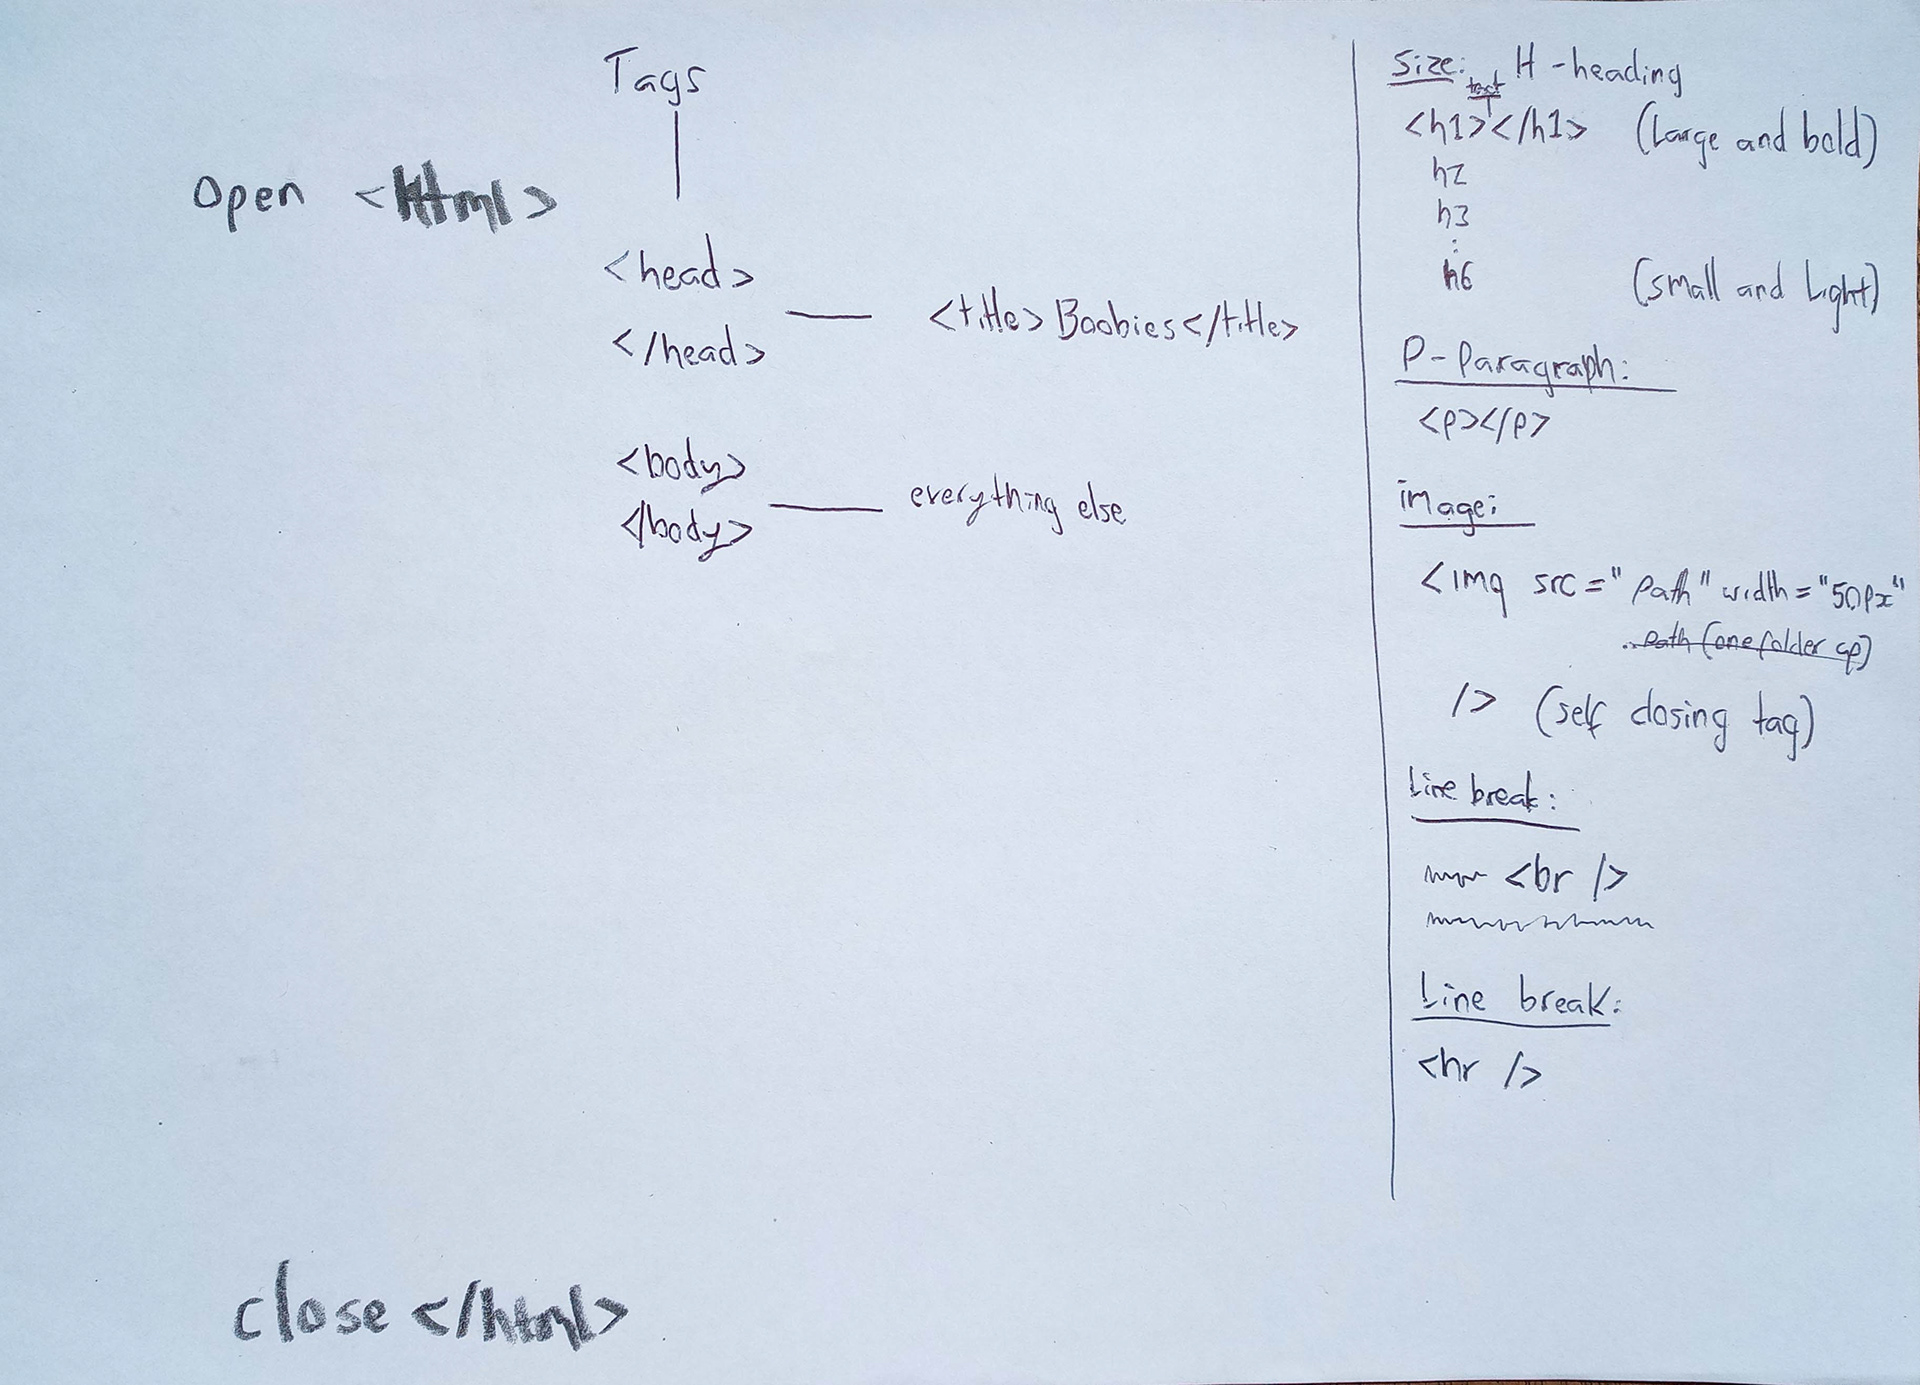 Tags
Open <Html>
<head>
</head>
<title> Boobies </title>
<body>
</body>
everything else
close </html>
Size: H - heading
text
<h1></h1> (Large and bold)
h2
h3
:
h6 (small and Light)
P - Paragraph:
<p></p>
image:
<img src = "path" width = "50px"
..path (one folder up)
/> (self closing tag)
Line break:
<br />
Line break:
<hr />